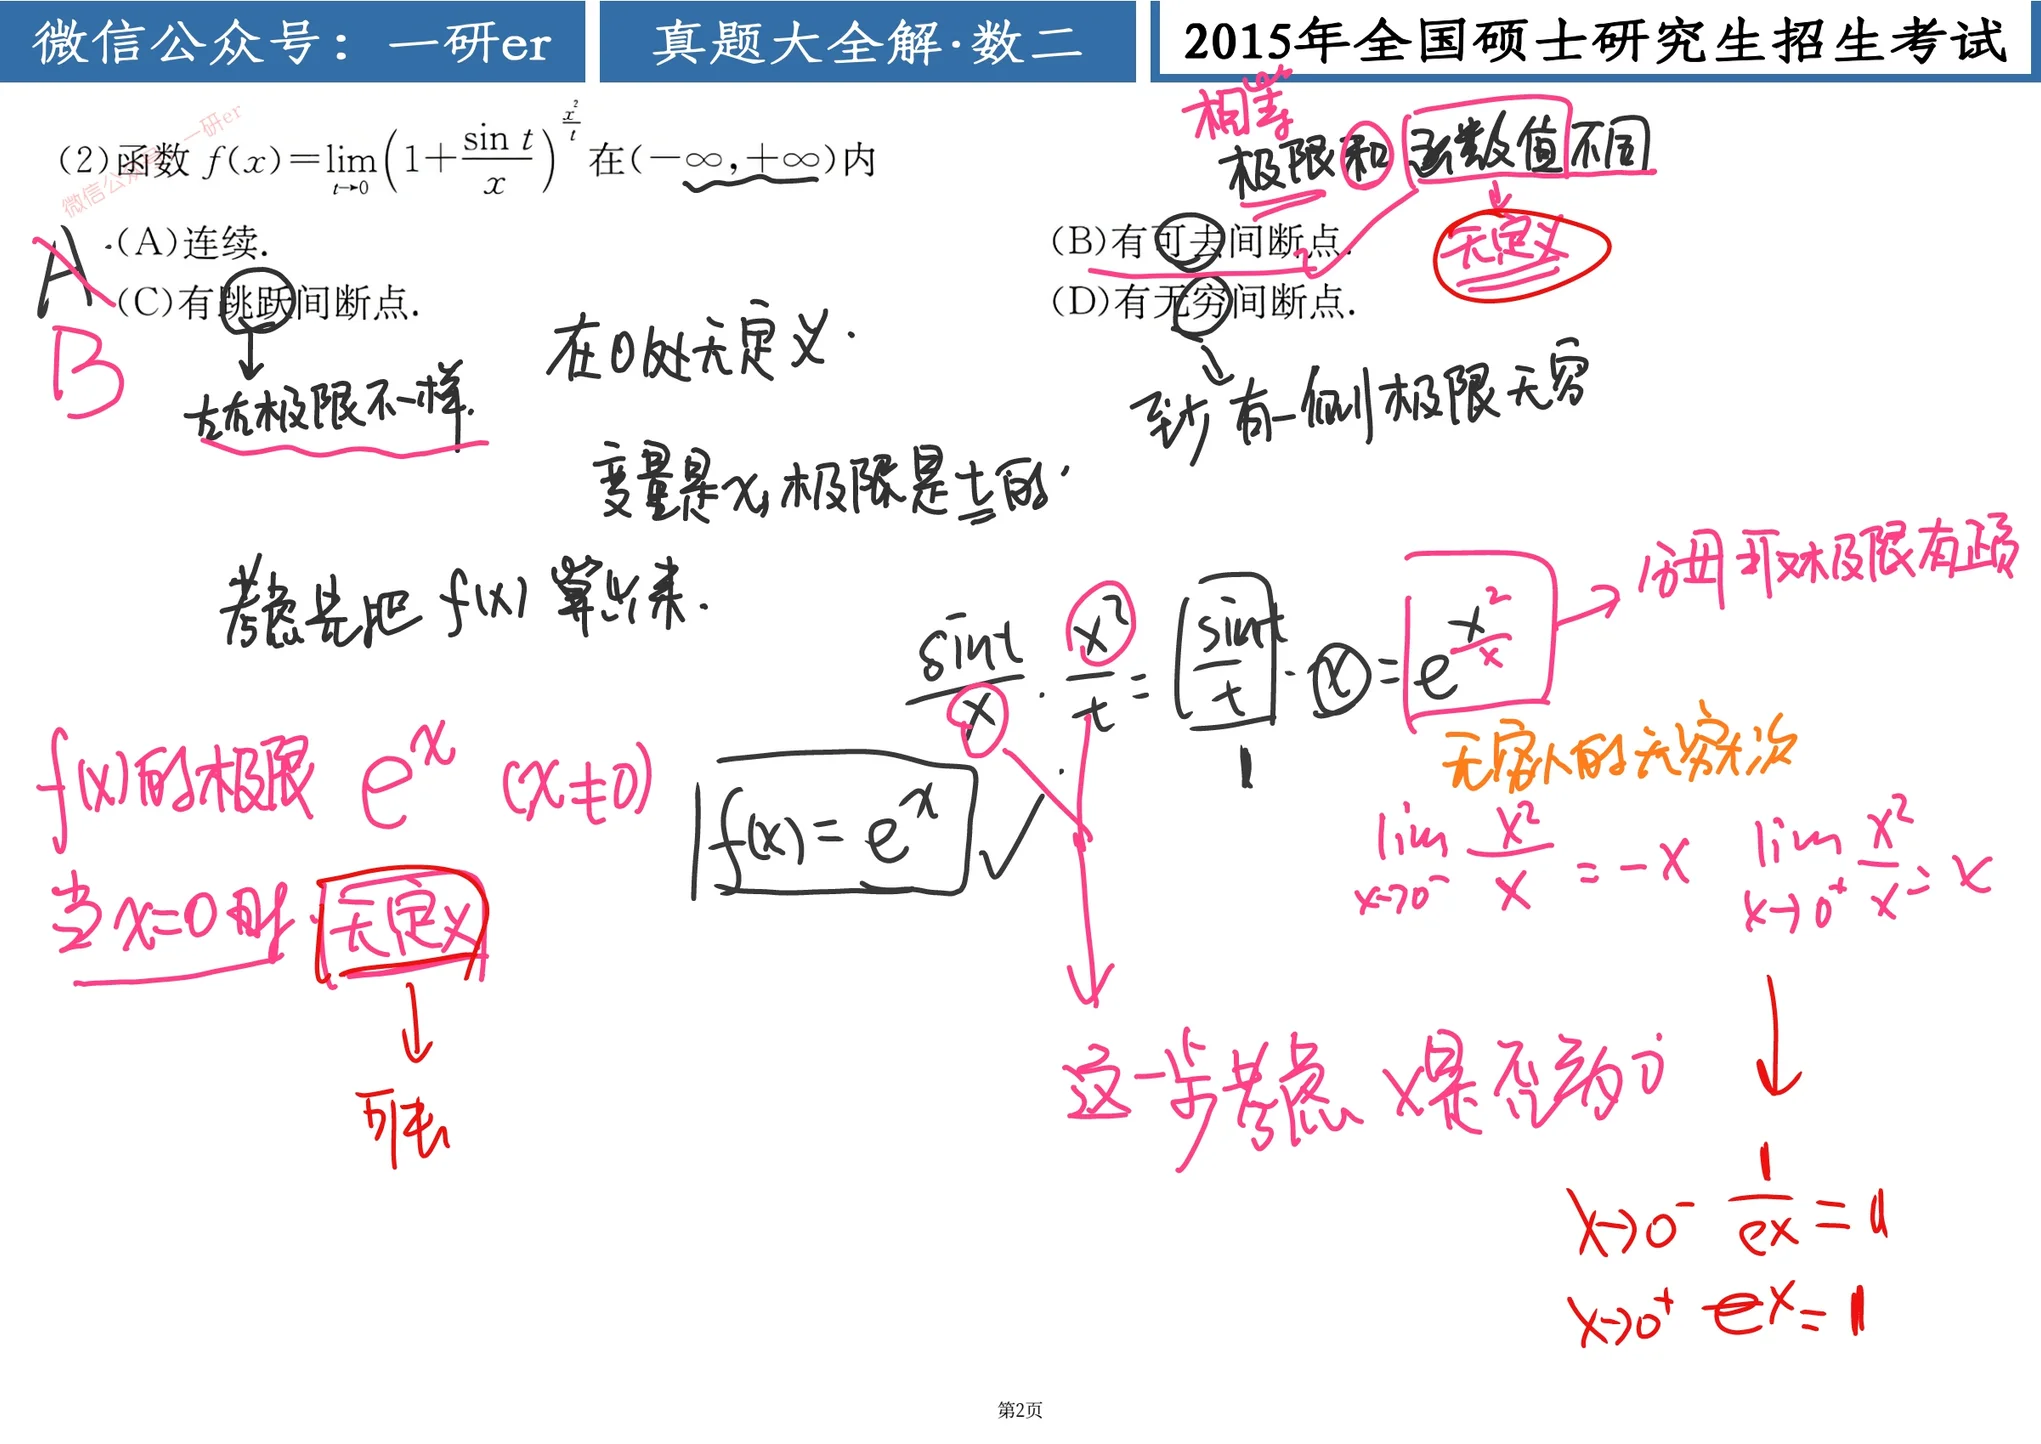 微信公众号：一研er
真题大全解·数二
2015年全国硕士研究生招生考试
微信公众号：一研er
(2)函数 f(x)=lim_{t→0}(1+\frac{sin t}{x})^{\frac{x^2}{t}} 在(-∞,+∞)内
相等
极限和函数值不同
无定义
A
·(A)连续.
(B)有可去间断点.
(C)有跳跃间断点.
(D)有无穷间断点.
B
左右极限不一样.
在0处无定义.
至少有一侧极限无穷
变量是x,极限是t的.
考虑先把 f(x) 算出来.
\frac{sint}{x} · \frac{x^2}{t} = \frac{sint}{t} · x = e^{\frac{x^2}{x}}
1
分母取极限有正负
f(x)的极限 e^x (x≠0)
f(x)=e^x ✓
lim_{x→0^-} \frac{x^2}{x} = -x
lim_{x→0^+} \frac{x^2}{x} = x
当x=0时 无定义
可去
这一步考虑 x是否为0
x→0^- \frac{1}{ex} = 1
x→0^+ e^x = 1
第2页